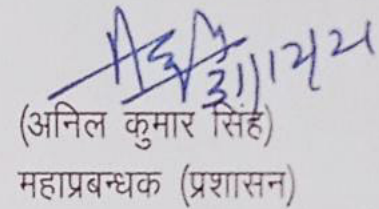 31/12/21
(अनिल कुमार सिंह)
महाप्रबन्धक (प्रशासन)